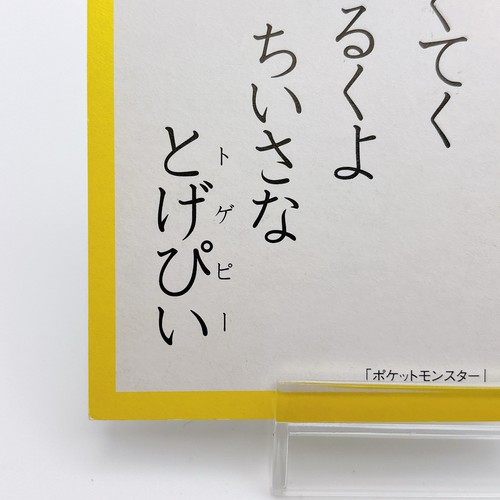 くてく
るくよ
ちいさな
とげぴい
トゲピー
「ポケットモンスター」